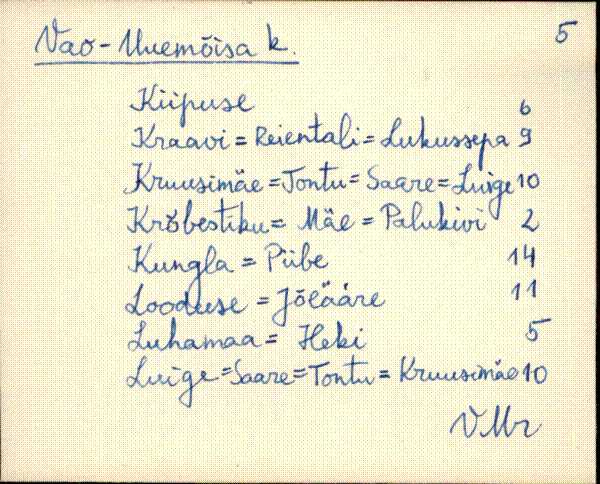 Vao-Uuemõisa k. 5
Kiipuse 6
Kraavi = Reientali = Lukussepa 9
Kruusimäe = Tontu = Saare = Luige 10
Krõbestiku = Mäe = Palukivi 2
Kungla = Piibe 14
Looduse = Jõeääre 11
Luhamaa = Heki 5
Luige = Saare = Tontu = Kruusimäe 10
VMr